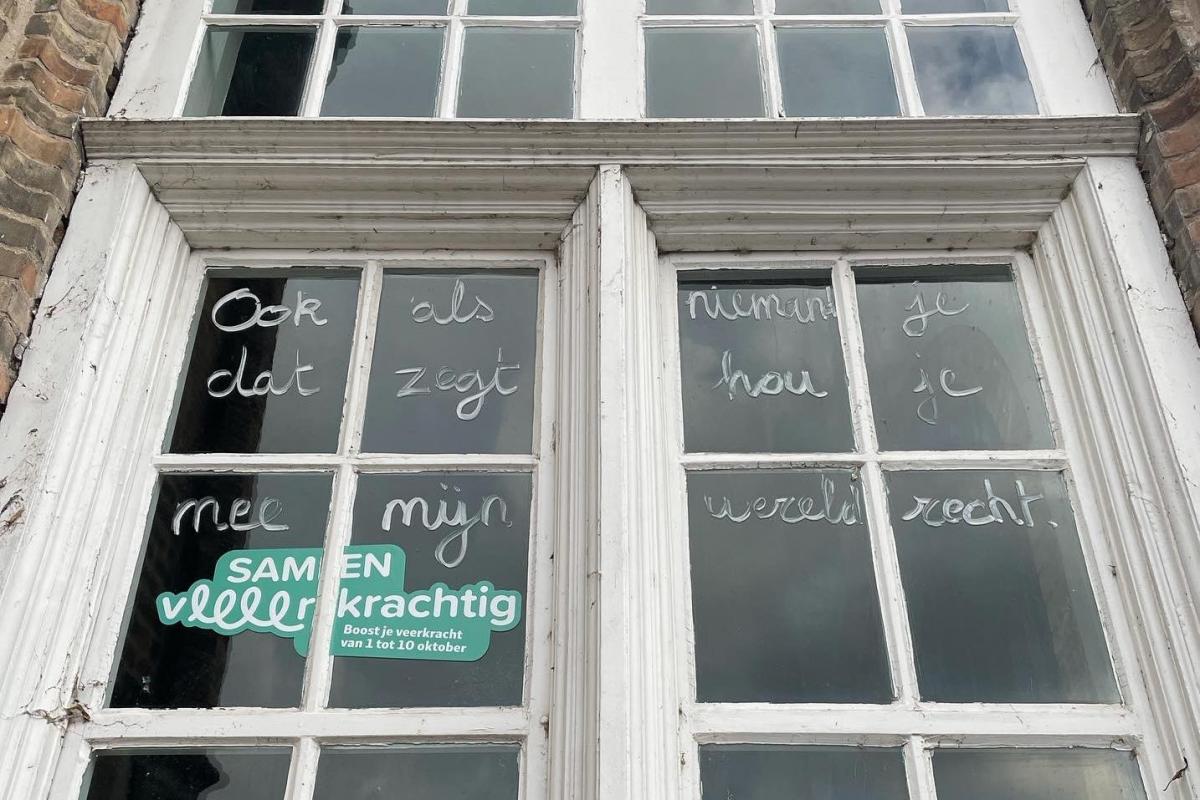 Ook als niemand je
dat zegt hou je
mee mijn wereld recht.
SAMEN
veeeerkrachtig
Boost je veerkracht
van 1 tot 10 oktober